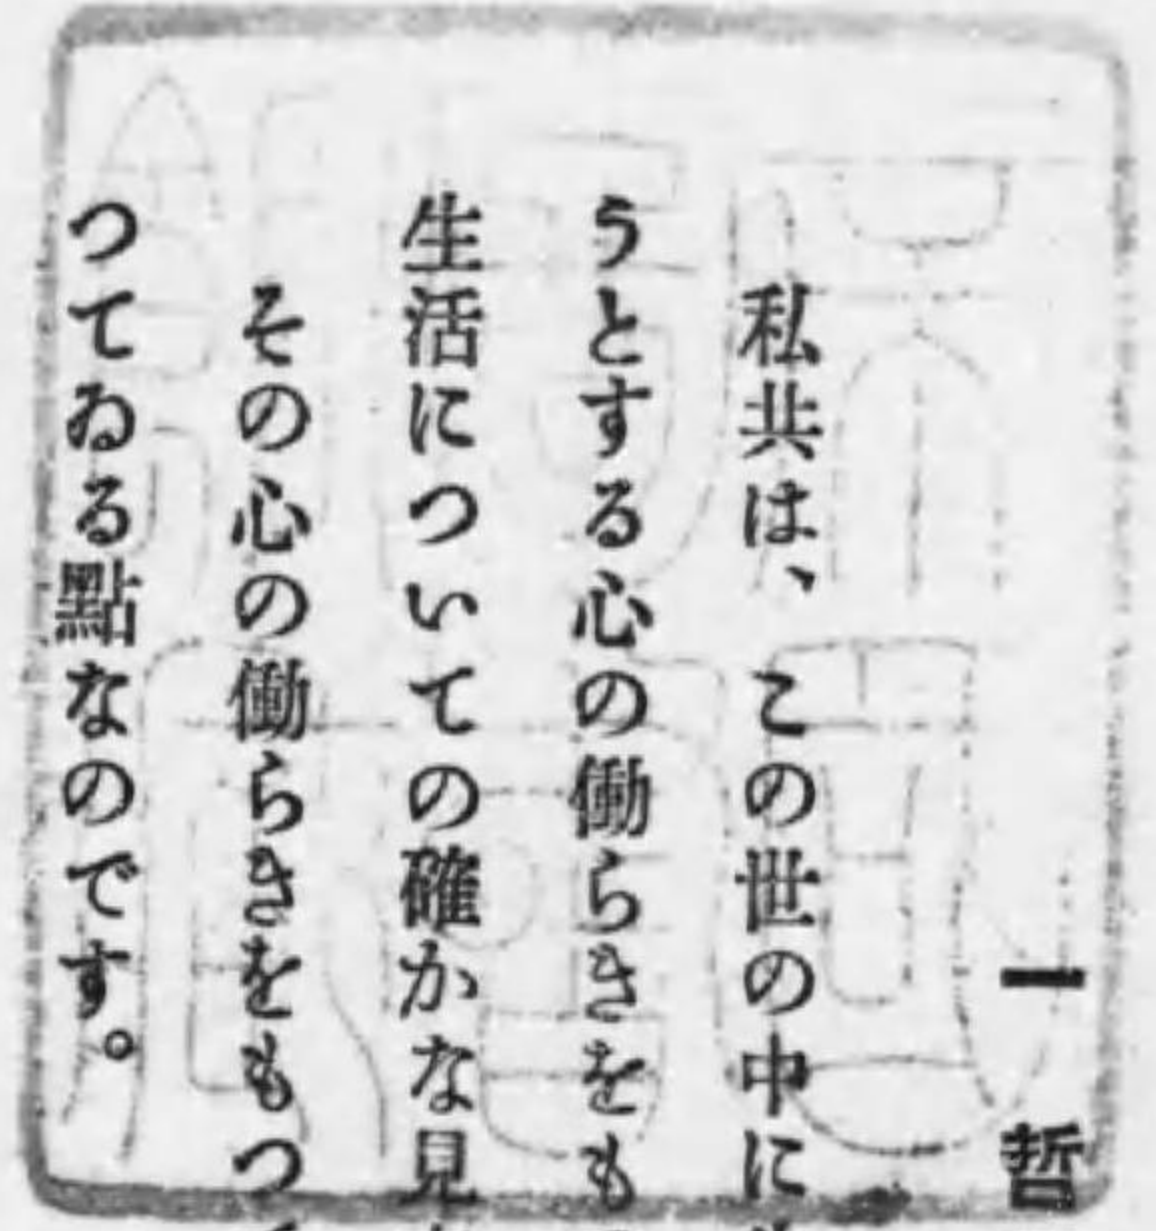 一 哲
私共は、この世の中に
うとする心の働らきをも
生活についての確かな見
その心の働らきをもつ
つてゐる點なのです。